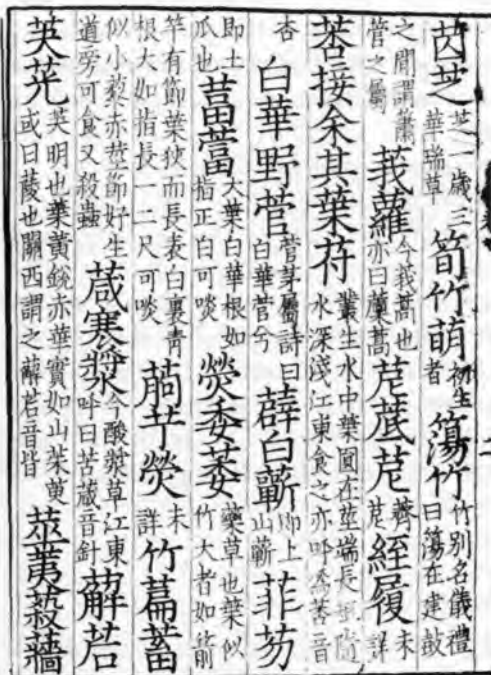 茵芝芝一歲三華瑞草筍竹萌初生者簜竹竹別名儀禮曰簜在建鼓
之間謂簫管之屬莪蘿今莪蒿也亦曰䕲蒿苨菧苨薺苨絰履未詳
莕接余其葉苻叢生水中葉圓在莖端長短隨水深淺江東食之亦呼為莕音
杏白華野菅菅茅屬詩曰白華菅兮薜白蘄即上山蘄菲芴
即土瓜也葍䔰大葉白華根如指正白可啖熒委萎藥草也葉似竹大者如箭
竿有節葉狹而長表白裏青根大如指長一二尺可啖葋艼熒未詳竹萹蓄
似小藜赤莖節好生道旁可食又殺蟲葴寒漿今酸漿草江東呼曰苦葴音針薢茩
芵茪芵明也葉黃銳赤華實如山茱萸或曰蔆也關西謂之薢茩音皆莁荑蔱蘠